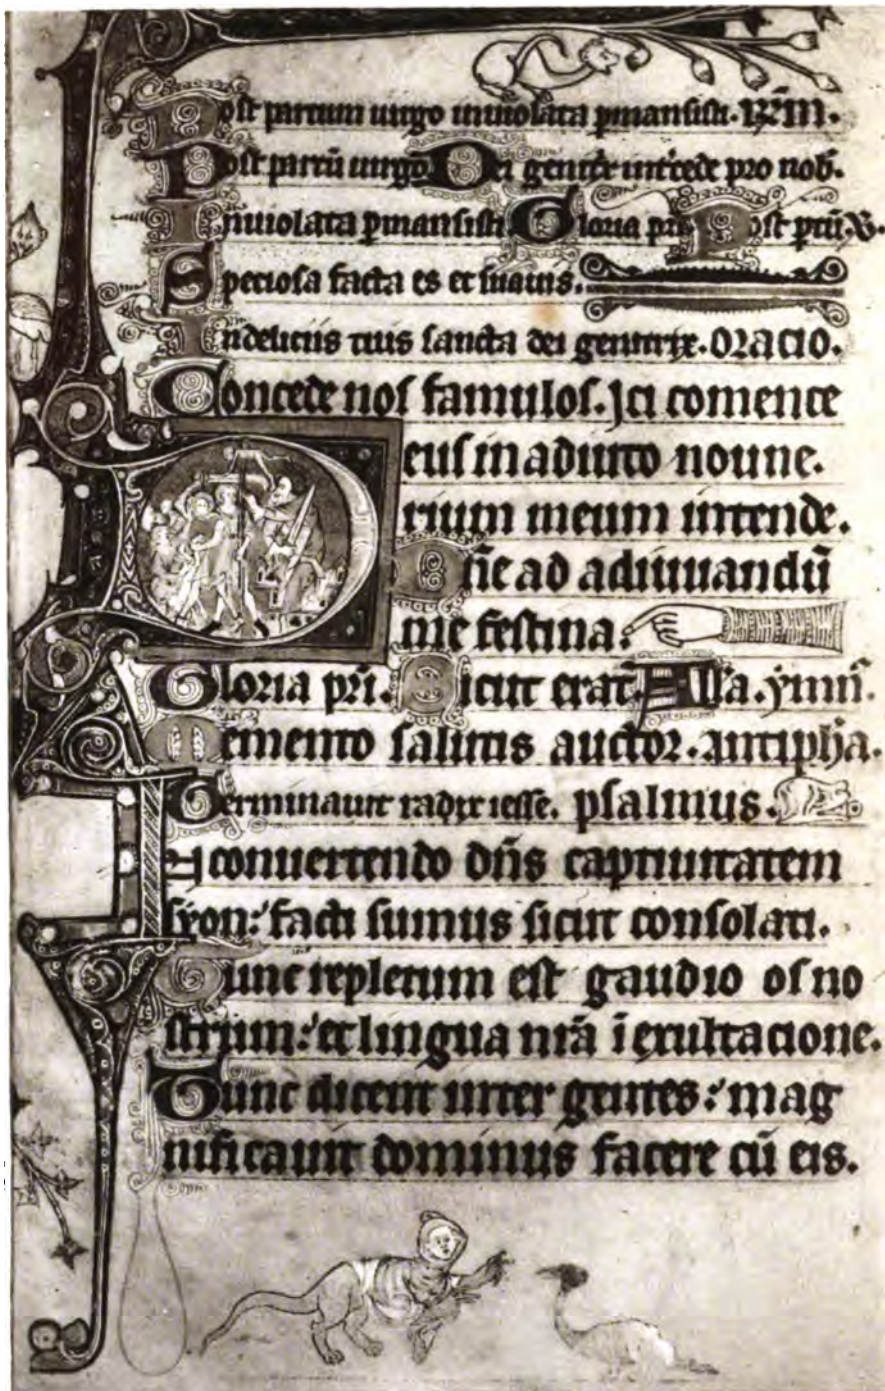 Post partum uirgo inuiolata pmansisti. Rm̄.
Post partū uirgo Dei genitr̄ int̄cede pro nob̄.
Inuiolata pmansisti Gloria pri Post ptū. V.
Speciosa facta es et suauis.
In deliciis tuis sancta dei genitrix. Oracio.
Concede nos famulos. Ici comence
Deus in adiuto noune.
rium meum intende.
Dn̄e ad adiuuandū
me festina.
Gloria pri. Sicut erat̄ Alla. ymn̄.
Memento salutis auctor. Antiph̄a.
Germinauit radix iesse. psalmus.
In conuertendo dn̄s captiuitatem
syon: facti sumus sicut consolati.
Tunc repletum est gaudio os no
strum: et lingua nr̄a ī exultacione.
Tunc dicent inter gentes: mag
nificauit dominus facere cū eis.